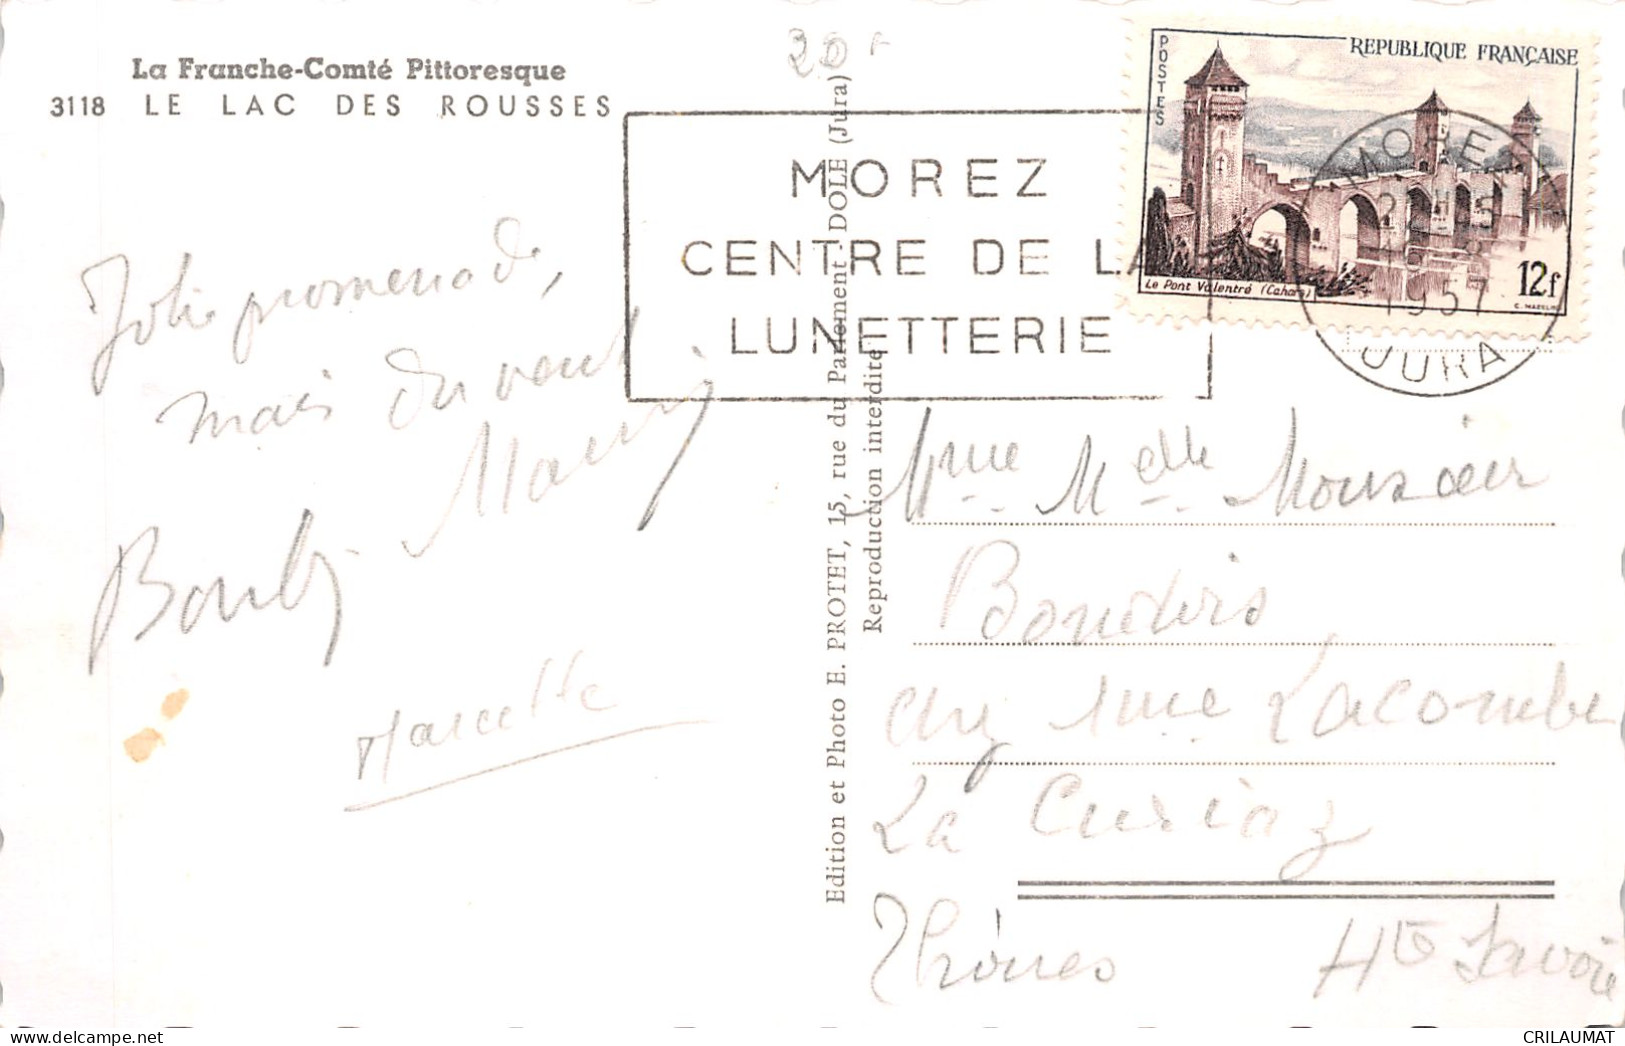 La Franche-Comté Pittoresque
3118 LE LAC DES ROUSSES
20 F
MOREZ
CENTRE DE LA
LUNETTERIE
POSTES
REPUBLIQUE FRANÇAISE
Le Pont Valentré (Cahors)
12f
MOREZ
1957
JURA
Jolie promenade,
mais du vent
Marcelle
Edition et Photo E. PROTET, 15, rue du Parlement - DOLE (Jura)
Reproduction interdite
Mme Melle Monsieur
chez Mme Lacombe
La Curiaz
Thônes Hte Savoie
CRILAUMAT